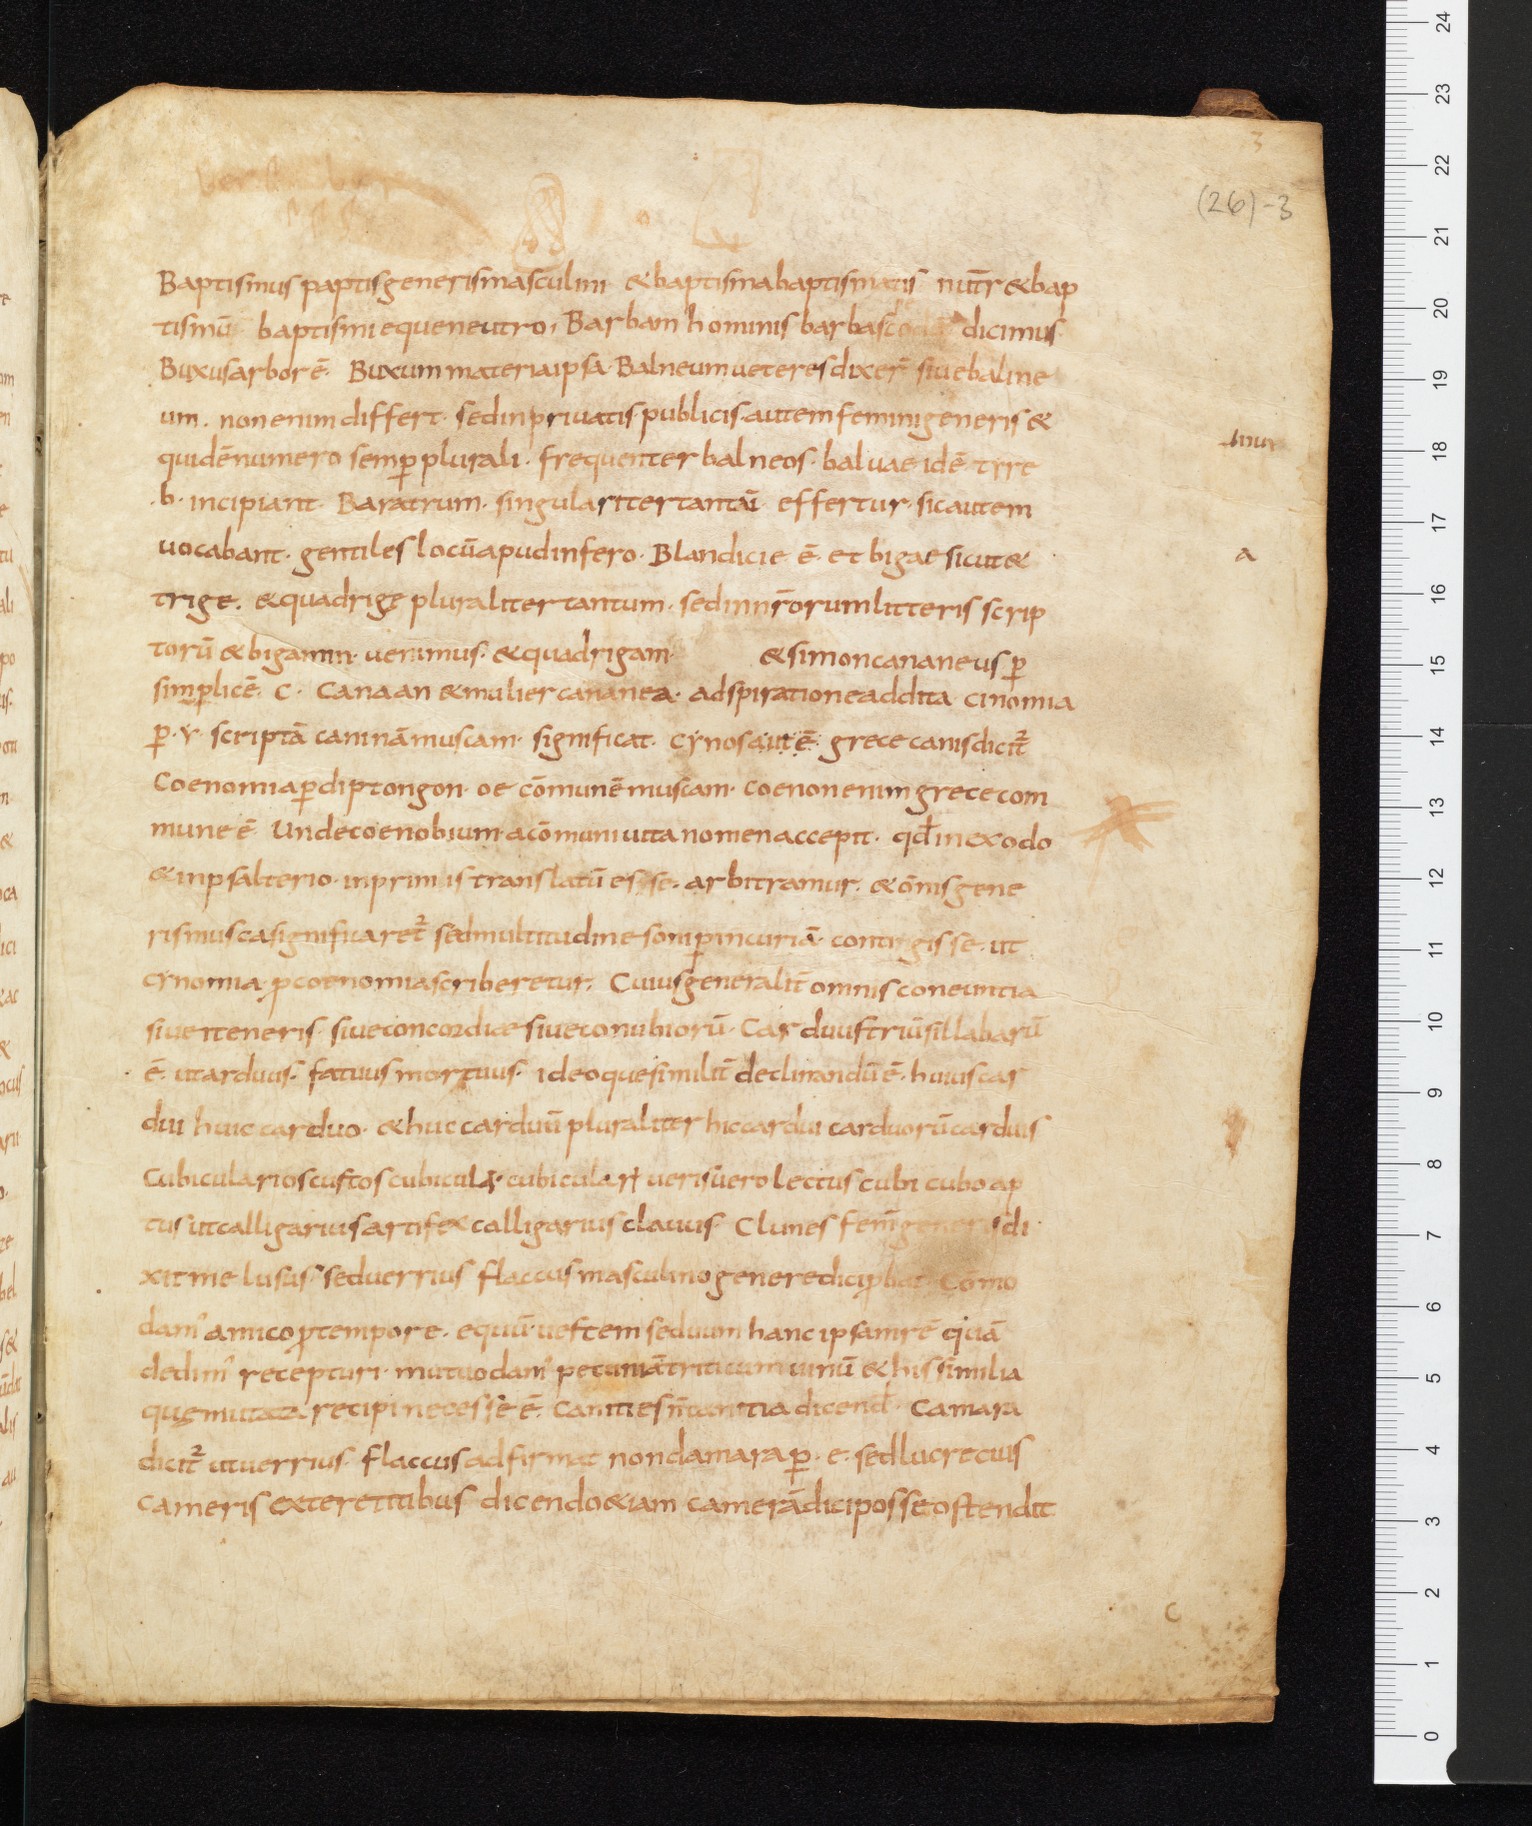 3
(26)-3
Baptismus paptis generis masculini & baptisma baptismatis nūtr & bap
tismū baptismi eque neutro, Barbam hominis barbas dicimus
Buxus arbor ē. Buxum materia ipsa. Balneum ueteres dixer̄ siue baline
um. non enim differt. sed in priuatis. publicis. autem femini generis &
quidē numero semꝑ plurali. frequenter balneos. baluae idē
.b. incipiant. Baratrum. singulariter effertur. sic autem
uocabant. gentiles locū apud infero. Blandicie ē. et bigae sicut &
a
trige. & quadrige pluraliter tantum. sed in nr̄orum litteris scrip
torū & bigamm. uenimus. & quadrigam. & simon cananeus ꝑ
simplicē. C. Canaan & mulier cananea. adspiratione addita cinomia
ꝑ. y. scriptā caninā muscam. significat. cynos aut ē. grece canis dicit̄
Coenomia ꝑ diptongon. oe cōmunē muscam. coenon enim grece com
mune ē. Unde coenobium. a cōmuni uita nomen accepit. qđ in exodo
& in psalterio. in primis translatū esse. arbitramur. & ōmis gene
ris musca significaret̄ sed multitudine somꝑ incuriā contingisse. ut
cynomia. ꝓ coenomia scriberetur. Cuius generalit̄ omnis coneuntia
siue iteneris. siue concordiae siue conubiorū. Carduus triū sillabarū
ē. ut arduus. fatuus mortuus. ideoque similit̄ declinandū ē. huius car
dui huic carduo. & huc carduū pluraliter hic cardui carduorū carduis
Cubicularios custos cubicula. uerisuero lectus cubi cubo ap
tus ut calligarius artifex calligarius clauus. Clunes fem̄ generis di
xit me lusus. sed uerrius flaccus masculino genere dici Cōmo
dam' amico ꝓ tempore. equū. uestem seduum hanc ipsam rē quā
dedim' recepturi. mutuo dam' pecuniā triticum uinū & his similia
quę mutata recipi necesse ē. Canities n̄ cantia dicend̄. Camara
dicit̄ ut uerrius. flaccus adfirmat non damara ꝑ. e. sed lucrecius
cameris exteretitibus dicendo &iam camerā dici posse ostendit
C